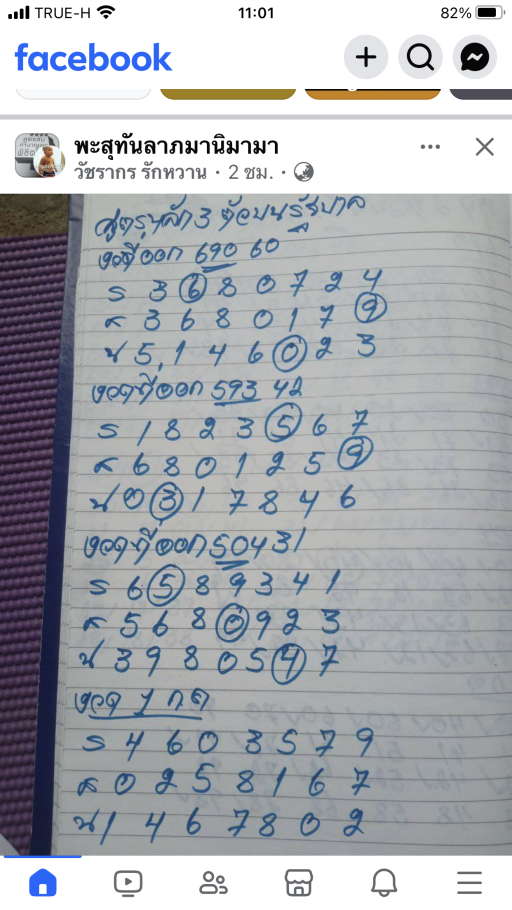 TRUE-H 11:01 82%
facebook
พะสุทันลาภมานิมามา
วัชรากร รักหวาน · 2 ชม. ·
สูตรรูหลัก 3 ตัวบนรัฐบาล
งวดที่ออก 690 60
ร 3 6 8 0 7 2 4
ส 3 6 8 0 1 7 9
น 5,1 4 6 0 2 3
งวดที่ออก 593 42
ร 1 8 2 3 5 6 7
ส 6 8 0 1 2 5 9
น 0 3 1 7 8 4 6
งวดที่ออก 504 31
ร 6 5 8 9 3 4 1
ส 5 6 8 0 9 2 3
น 3 9 8 0 5 4 7
งวด 1 กค
ร 4 6 0 3 5 7 9
ส 0 2 5 8 1 6 7
น 1 4 6 7 8 0 2